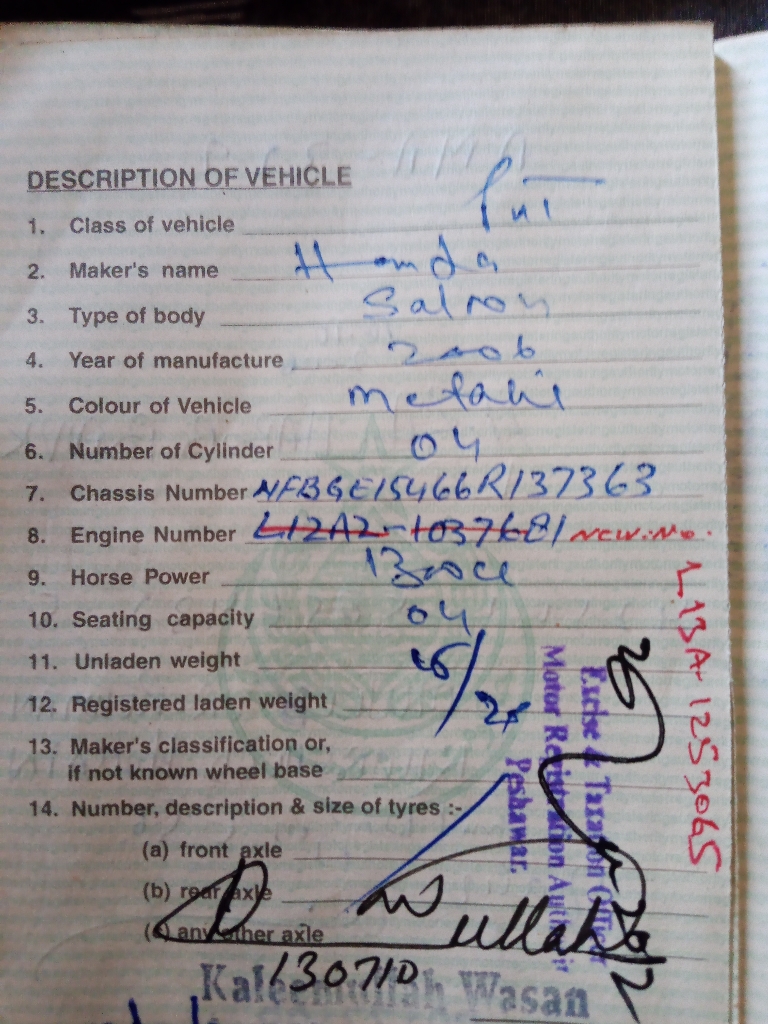 DESCRIPTION OF VEHICLE
1. Class of vehicle Pvt
2. Maker's name Honda
3. Type of body Saloon
4. Year of manufacture 2006
5. Colour of Vehicle metalic
6. Number of Cylinder 04
7. Chassis Number NFBGE15466R137363
8. Engine Number L12A2-1037681 NEW.No.
L13A-1253065
9. Horse Power 1300cc
10. Seating capacity 04
11. Unladen weight
12. Registered laden weight
13. Maker's classification or,
if not known wheel base
14. Number, description & size of tyres :-
(a) front axle
(b) rear axle
(c) any other axle
Excise & Taxation Officer
Motor Registration
Peshawar.
130710
Kaleemullah Wasan